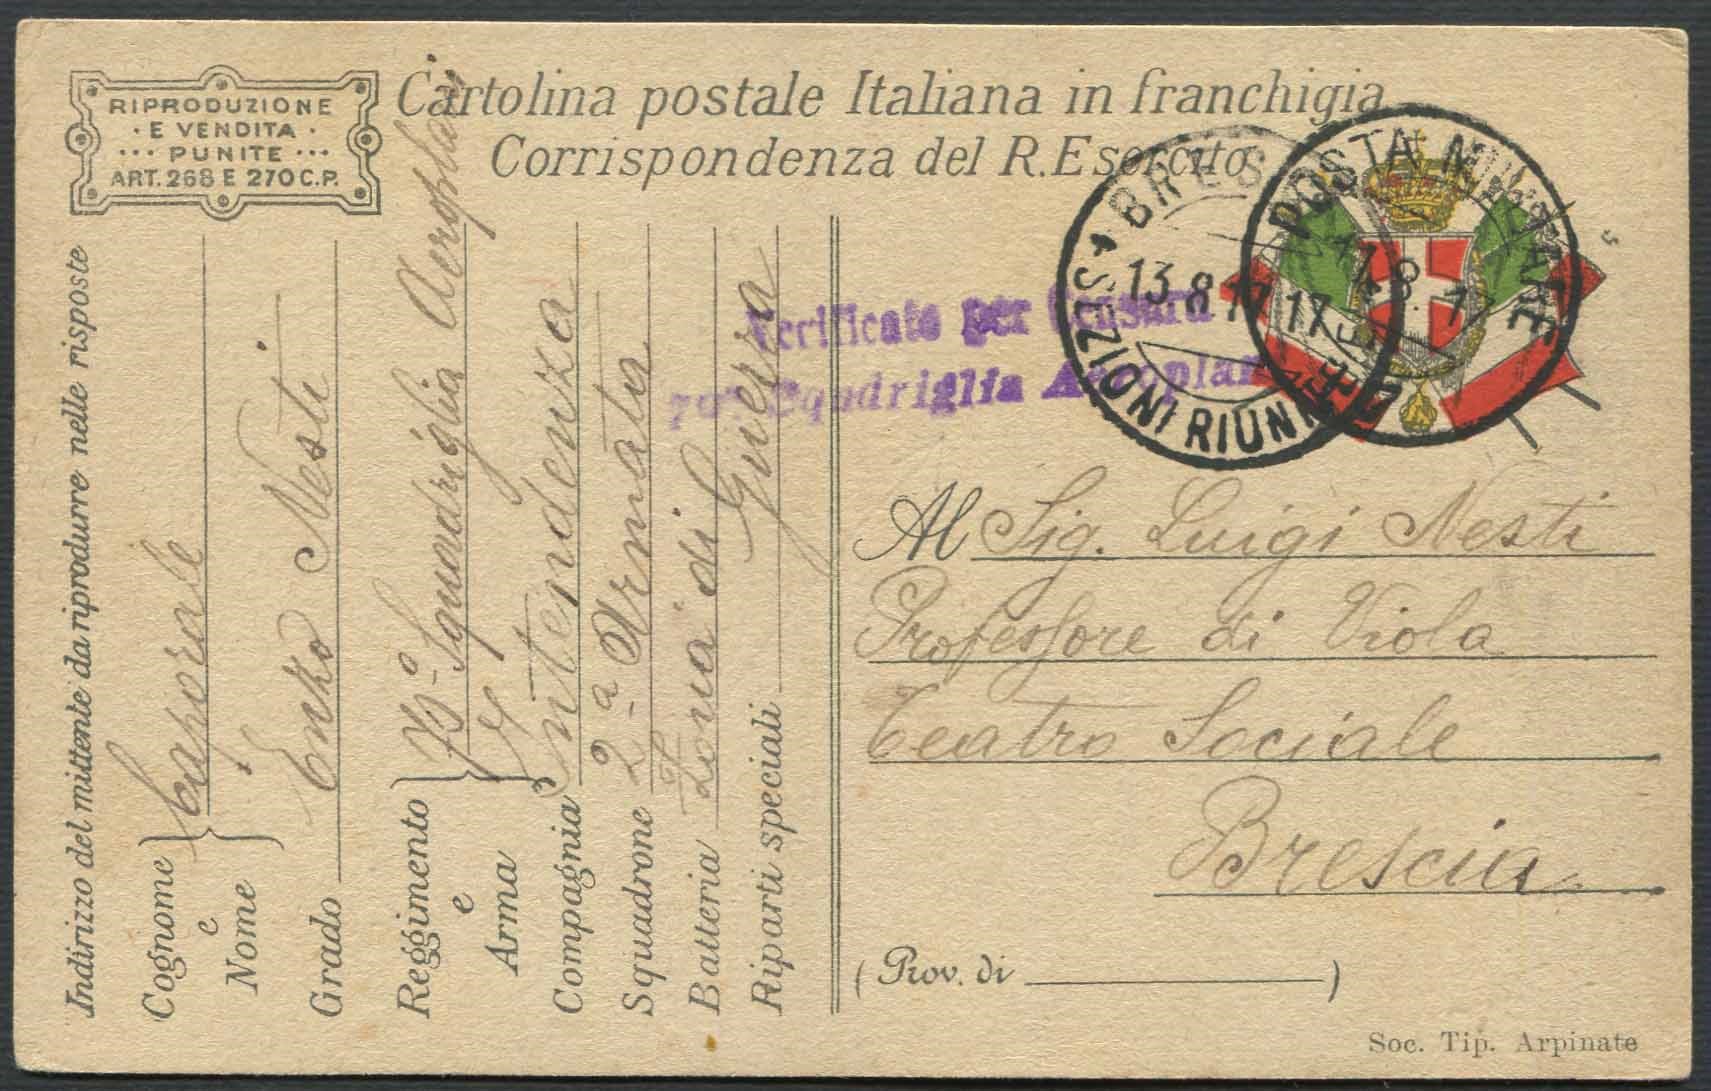 RIPRODUZIONE
· E VENDITA ·
··· PUNITE ···
ART. 268 E 270 C.P.
Cartolina postale Italiana in franchigia
Corrispondenza del R. Esercito
BRES
13.8.17 17
SEZIONI RIUNITE
POSTA MILITARE
8.17
Verificato per Censura
Squadriglia Aeroplani
Indirizzo del mittente da riprodurre nelle risposte
Cognome e Nome } Caporale
Grado Enzo Nesti
Reggimento e Arma } Squadriglia Aeroplani
Compagnia Intendenza
Squadrone 2ª Armata
Batteria Zona di Guerra
Riparti speciali
Al Sig. Luigi Nesti
Professore di Viola
Teatro Sociale
Brescia
(Prov. di )
Soc. Tip. Arpinate